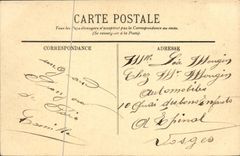 CARTE POSTALE
Tous les Pays étrangers n'acceptent pas la Correspondance au recto.
(Se renseigner à la Poste)
CORRESPONDANCE
ADRESSE
Mlle Léa Mougin
Chez Mr Mougin
Automobiles
10 Quai des bons Enfants
A Epinal
Vosges
Camille